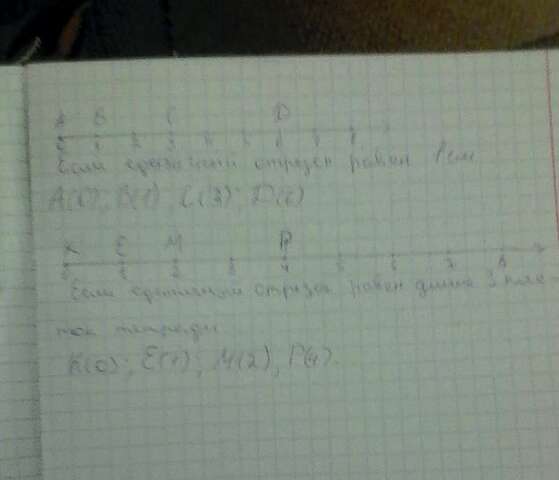 A B C D
0 1 2 3 4 5 6 7 8
Если единичный отрезок равен 1см
A(0); B(1); C(3); D(6)
K E M P
0 1 2 3 4 5 6 7 8
Если единичный отрезок равен длине 3 кле
ток тетради
K(0); E(1); M(2); P(4).